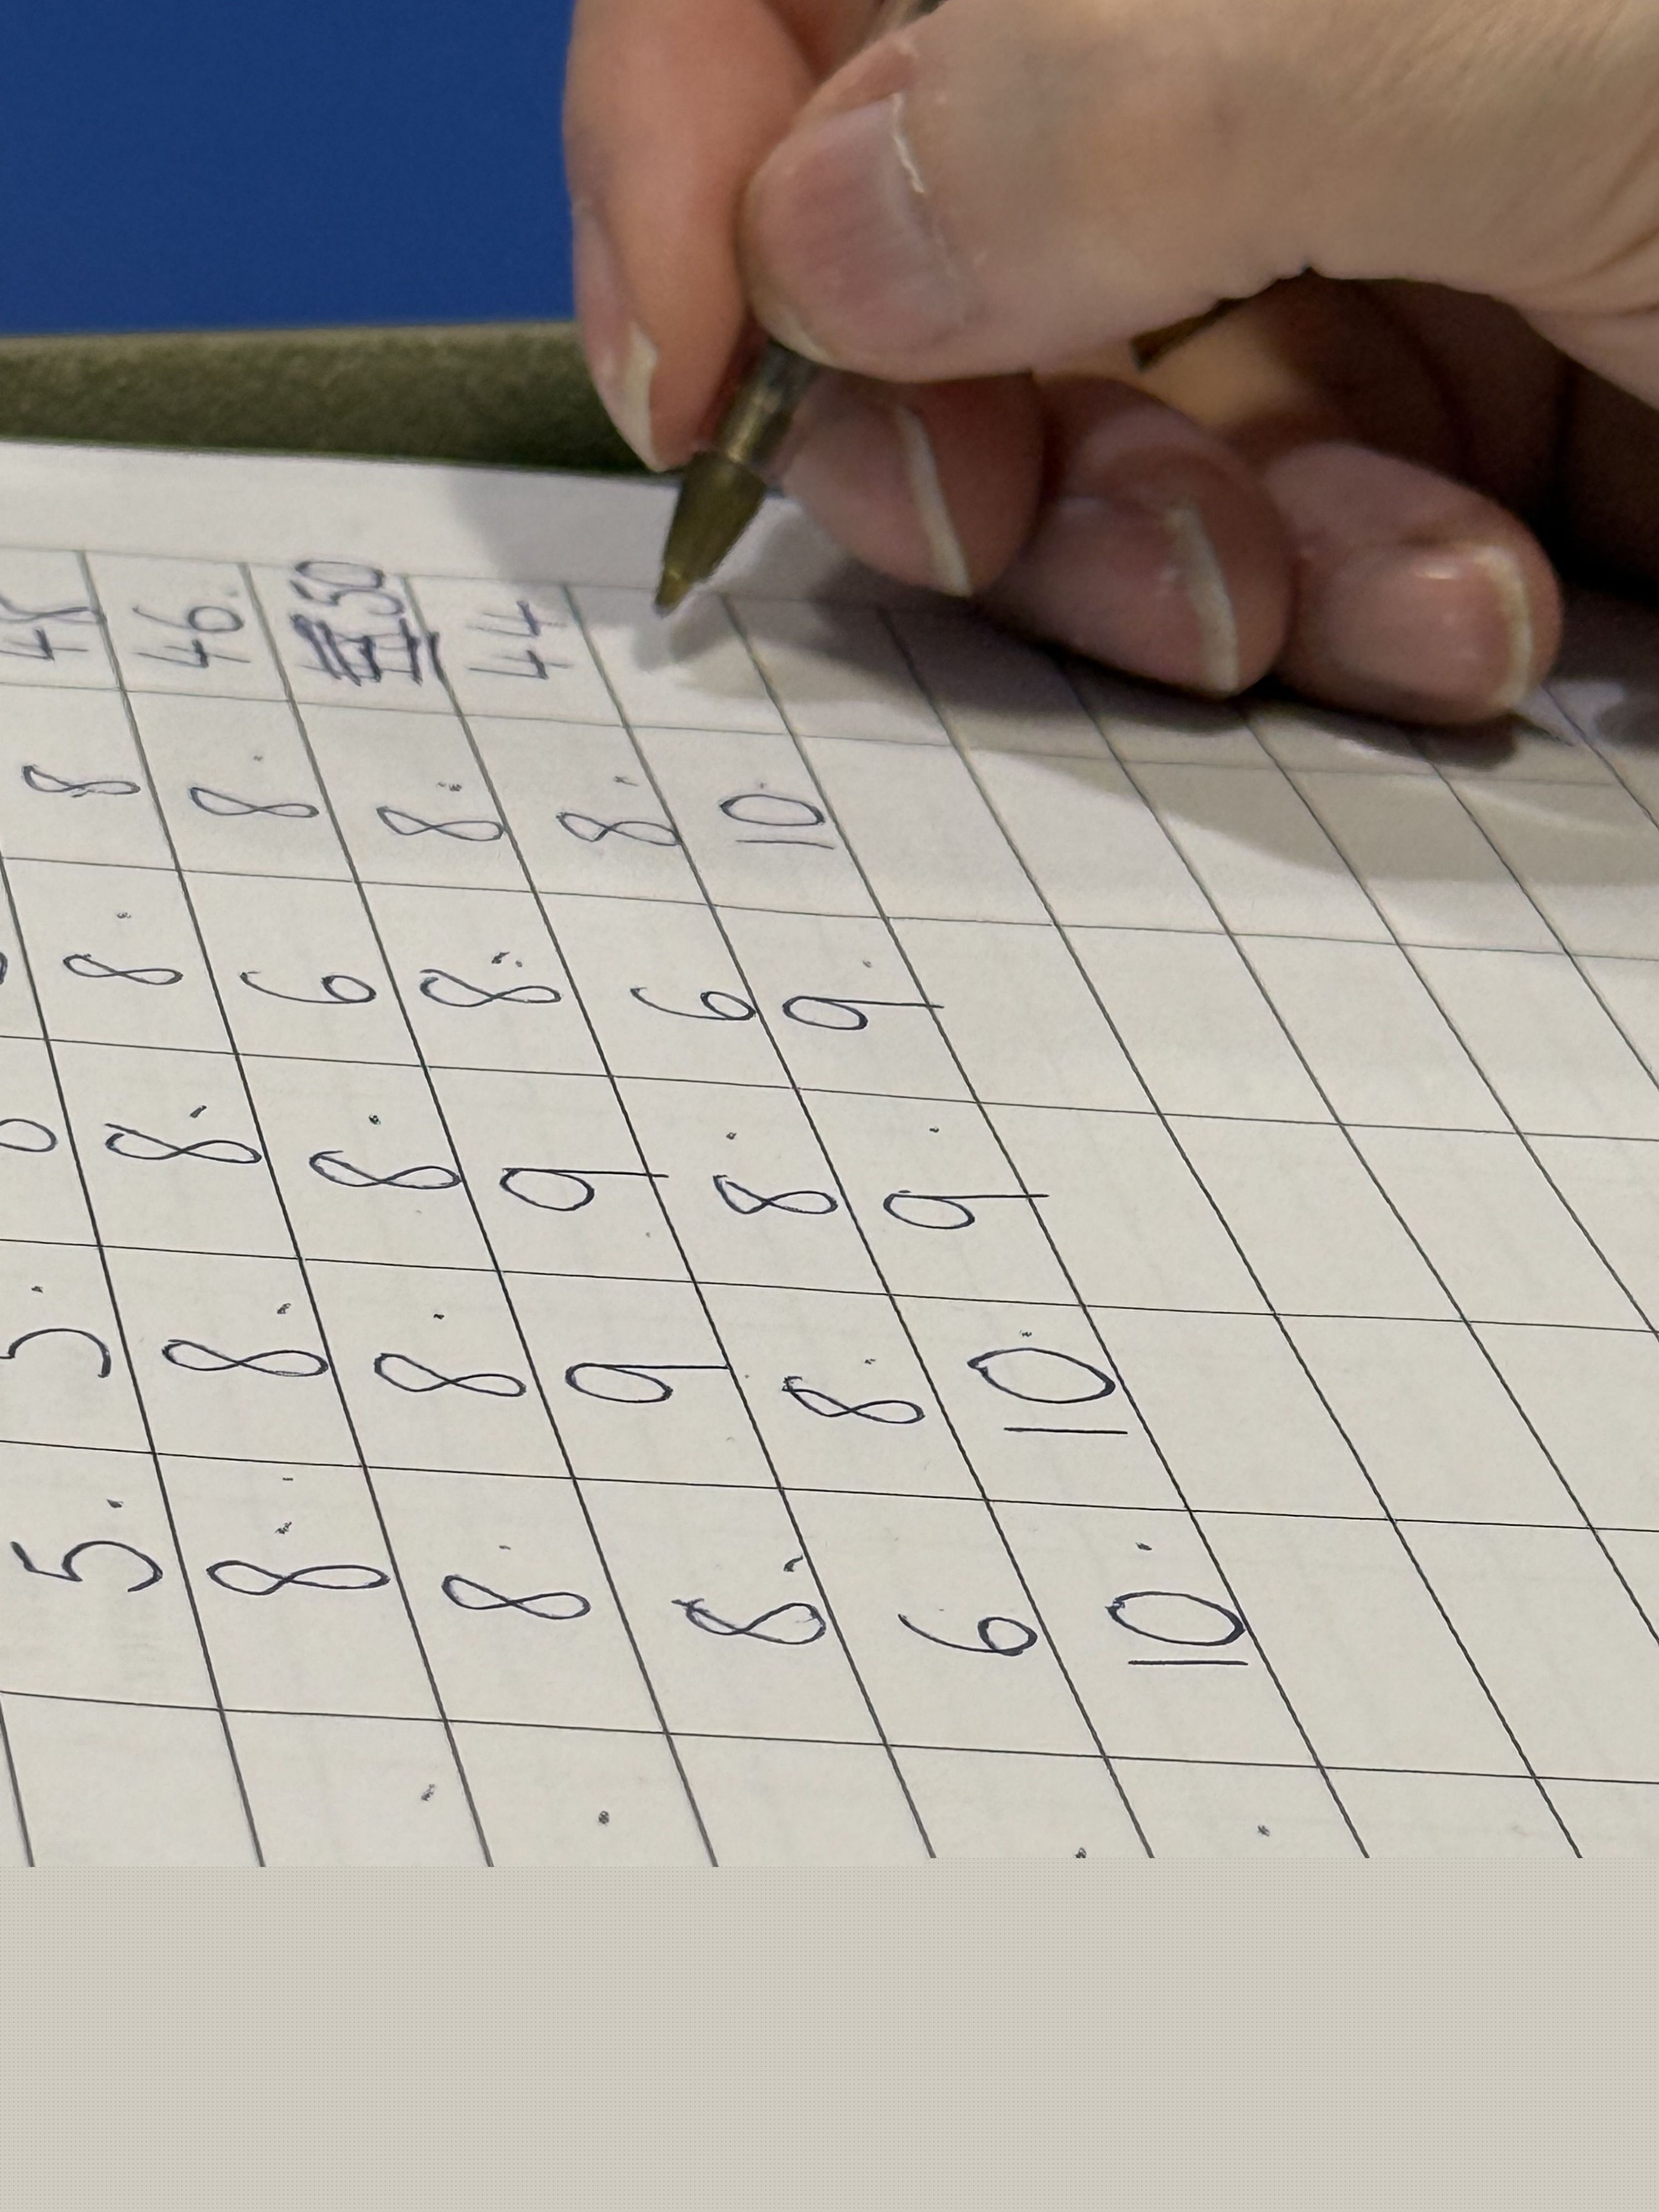 5
8 8 8 8 8
8 8 8 6 8 46.
8 9 9 8 8 50
6 8 8 6 8 44
10 10 9 9 10